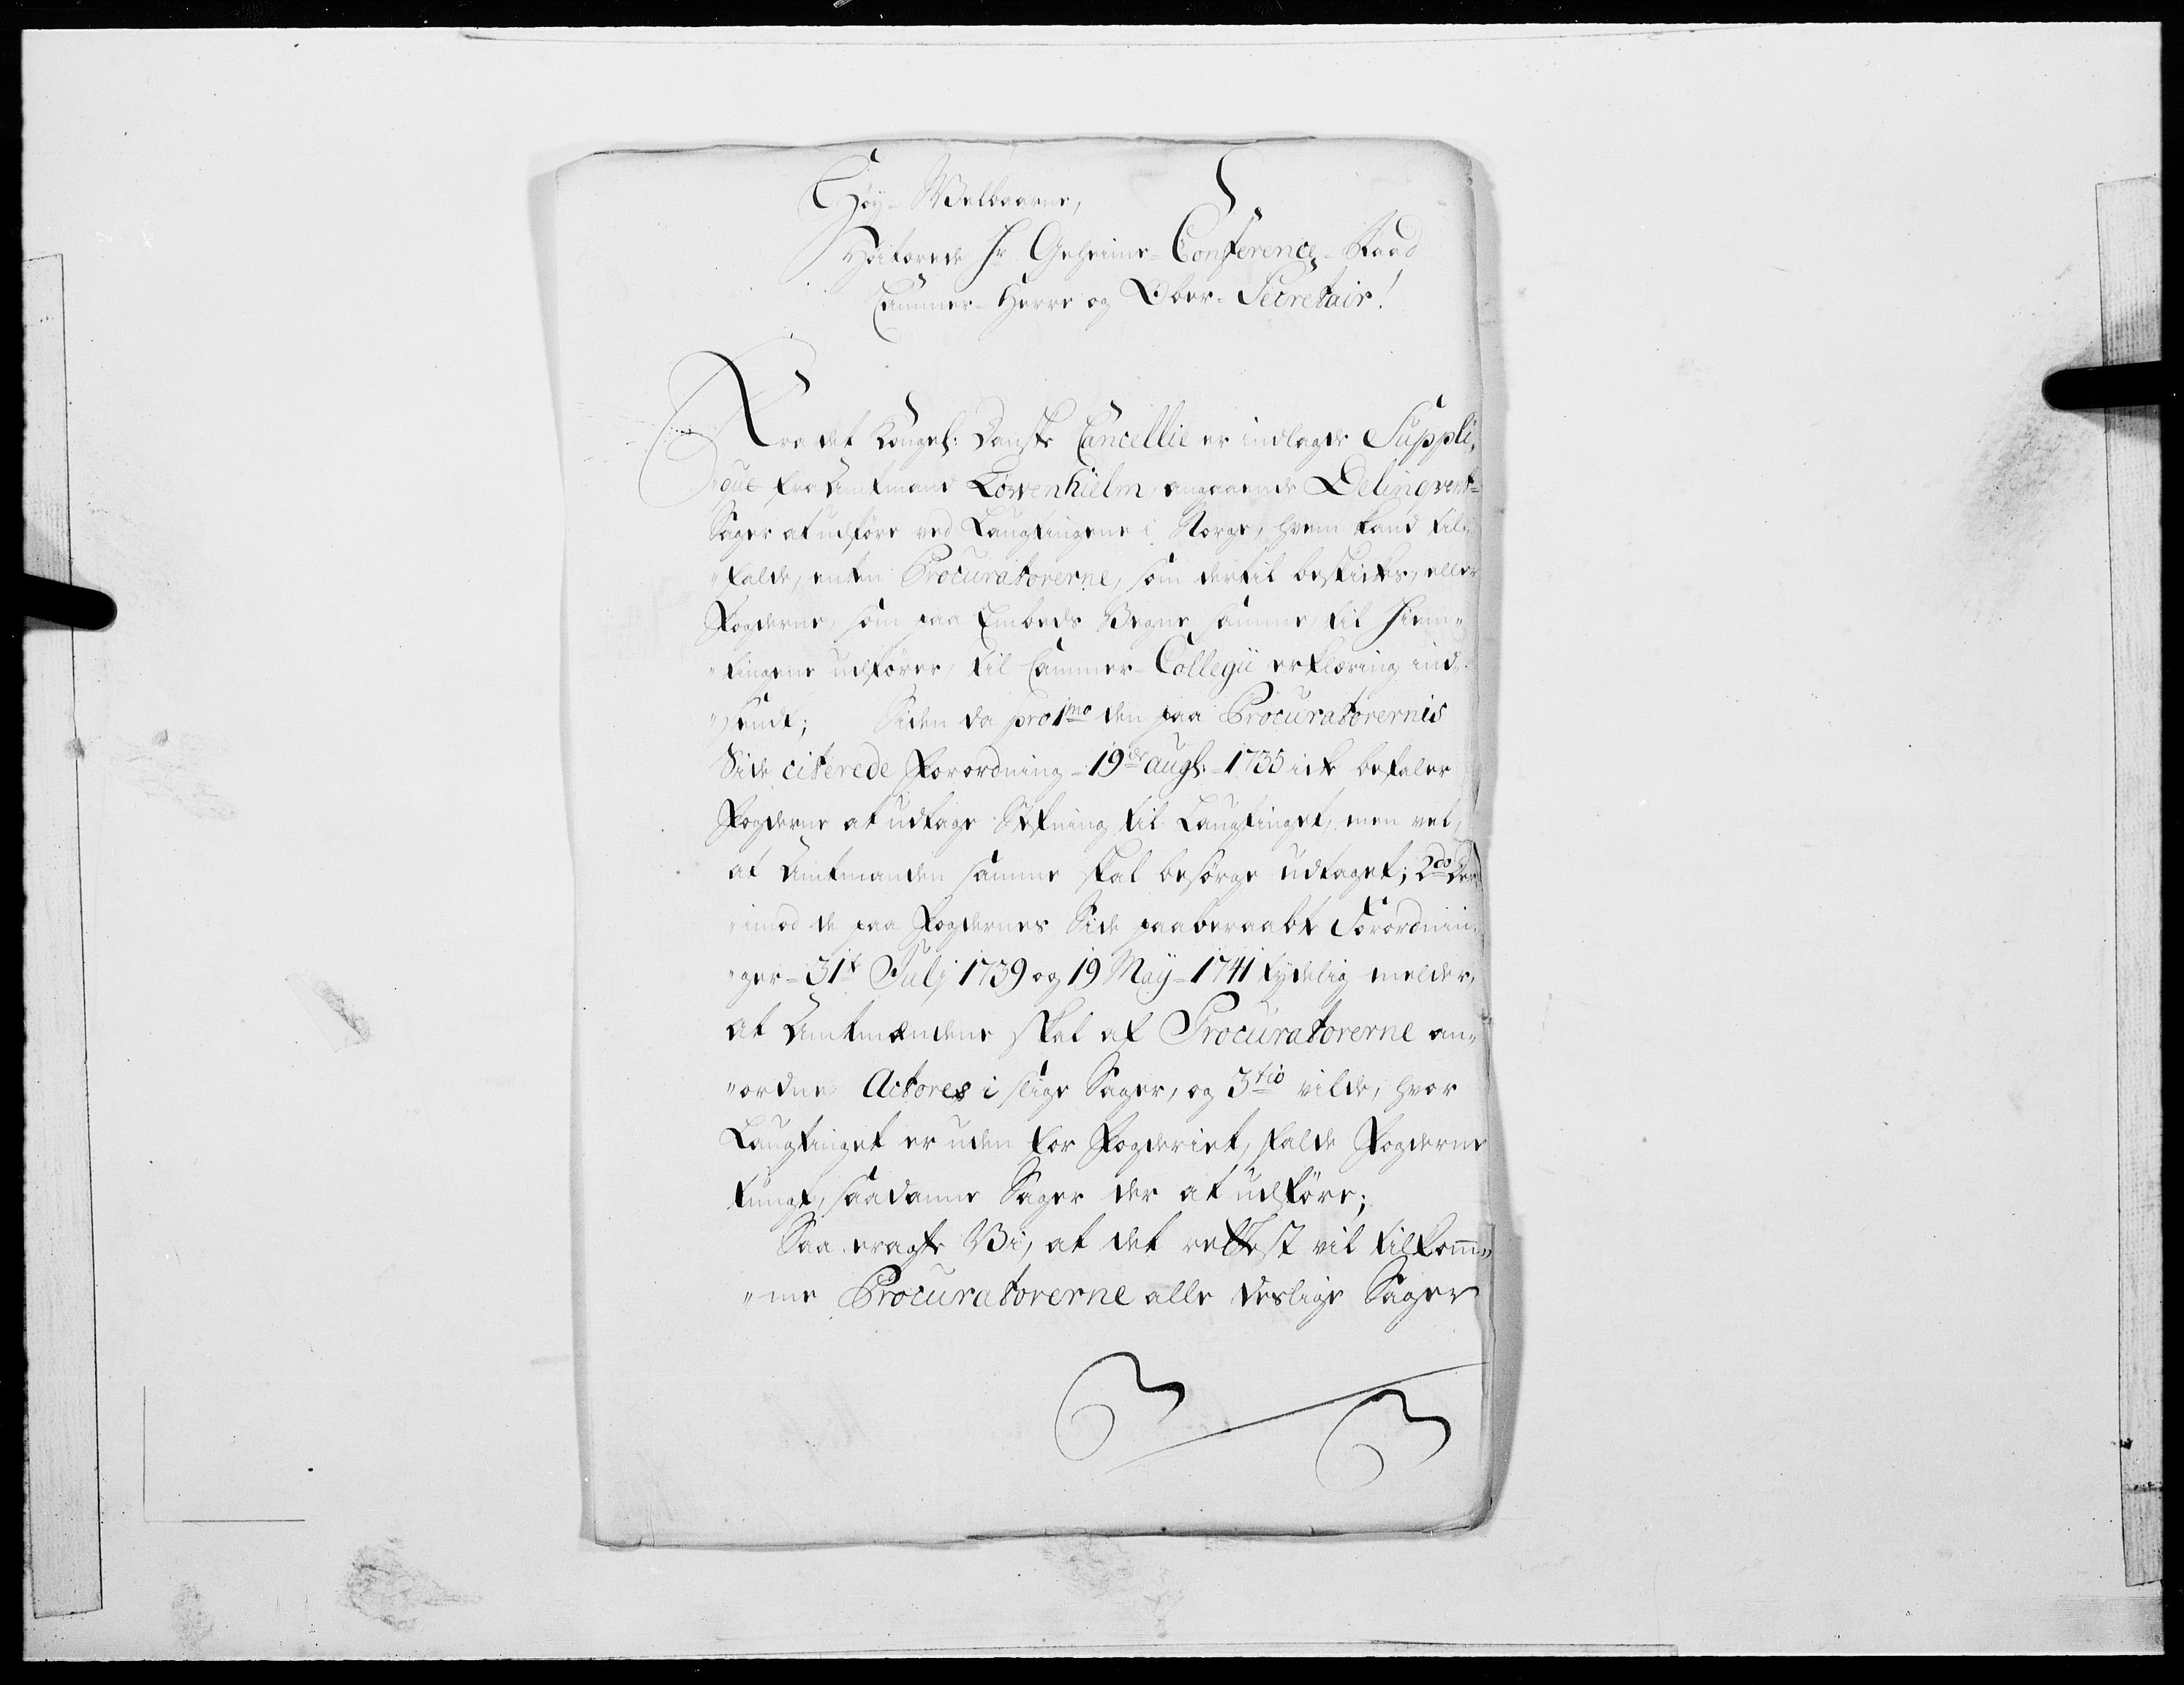 Høy-Welbaarne,
Høitærede Hr Geheime-Conference-Raad
Cammer-Herre og Ober-Secretair!
Fra det Kongel: Danske Cancellie er indlagde Suppli„
„que fra Amtmand Løwenhielm, angaaende Delinqvent-
Sager at udføre ved Laugtingene i Norge, hvem kand til„
„falde, enten Procuratorerne, som dertil beskikkes, eller
Fogderne, som paa Embeds Vegne samme til Hiem„
„tingene udfører, til Cammer-Collegii erklæring ind„
„sendt; Siden da pro 1mo den paa Procuratorernis
Side citerede Forordning-19de augs:-1735 ickke befaler
Fogderne at udtage Stefning til Laugtinget, men vel,
at Amtmanden samme skal besørge udtaget; 2do Der„
„imod de paa Fogdernes Side paaberaabte Forordnin„
„ger-31te Julj 1739 og 19 Maÿ-1741 tydelig melder,
at Amtmændene skal af Procuratorerne an„
„ordne Actores i slige Sager, og 3tio vilde, hvor
Laugtinget er uden for Fogderiet, falde Fogderne
tungt, saadanne Sager der at udføre;
Saa eragte Vi, at det rettest vil tilkom„
„me Procuratorerne alle deslige Sager